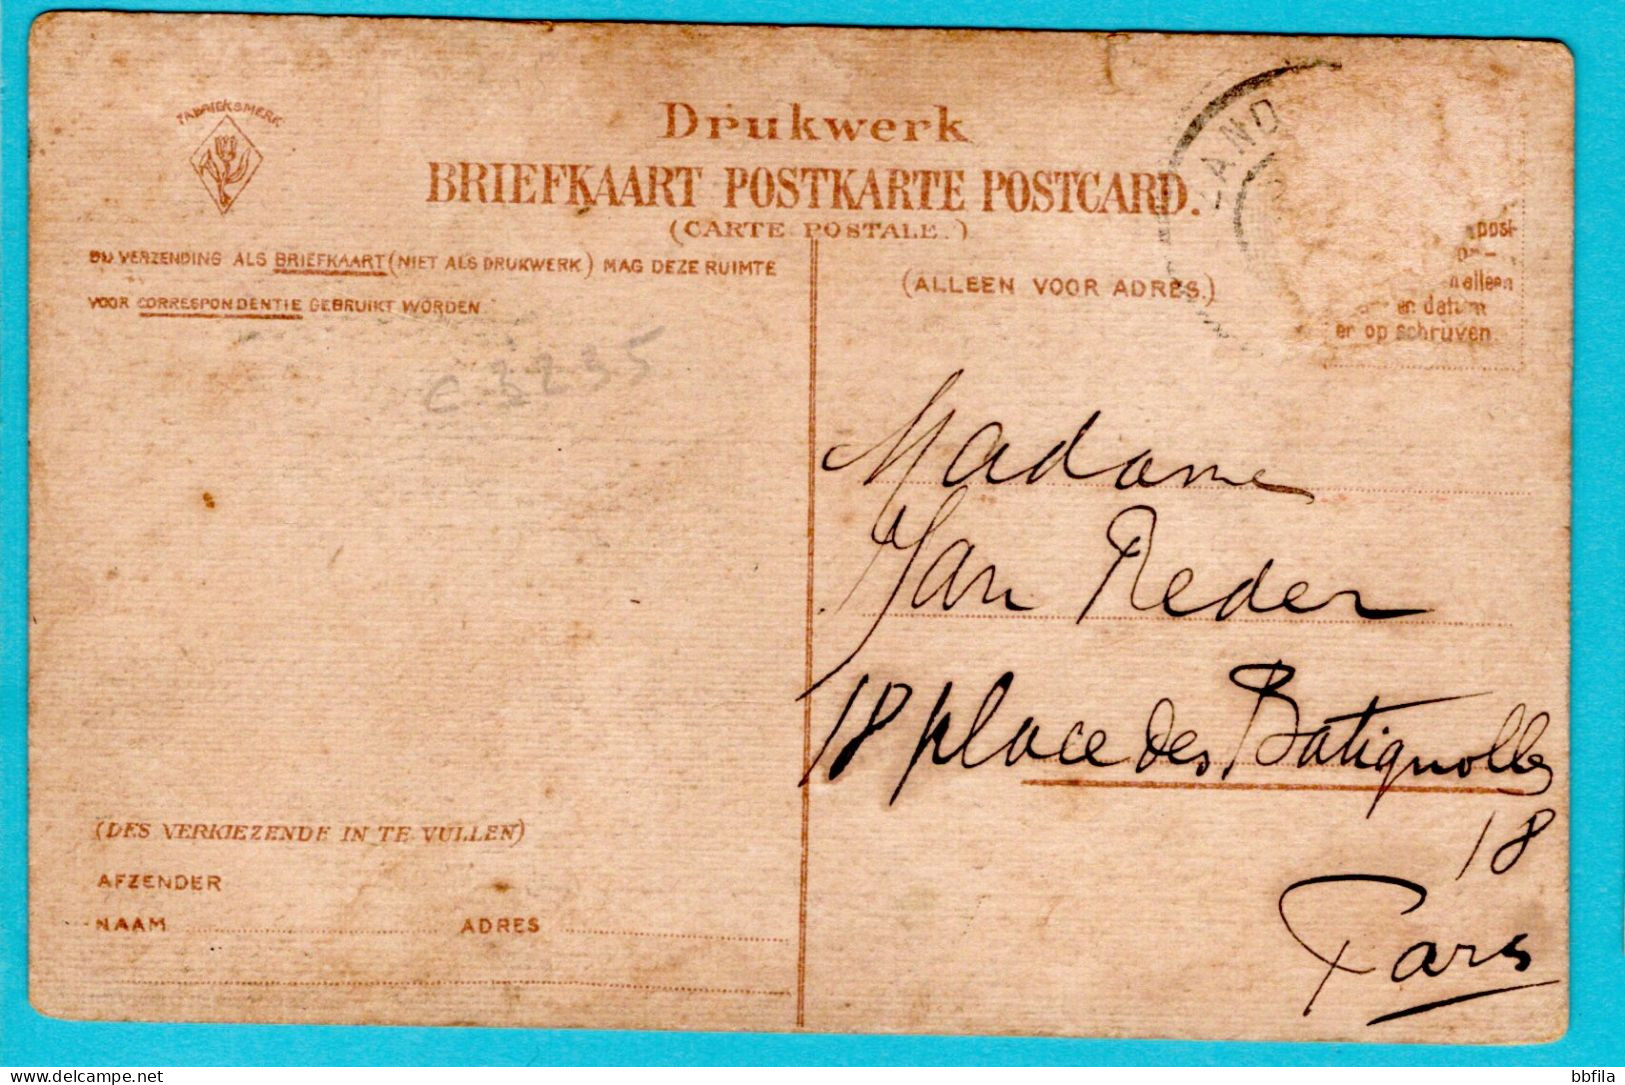 FABRIEKSMERK
Drukwerk
BRIEFKAART POSTKARTE POSTCARD.
(CARTE POSTALE.)
BIJ VERZENDING ALS BRIEFKAART (NIET ALS DRUKWERK) MAG DEZE RUIMTE
VOOR CORRESPONDENTIE GEBRUIKT WORDEN
(ALLEEN VOOR ADRES.)
LAND
post-
alleen
en datum
er op schrijven
C 3235
Madame
Van Reder
18 place des Batignolles
18
Paris
(DES VERKIEZENDE IN TE VULLEN)
AFZENDER
NAAM ADRES
bbfila